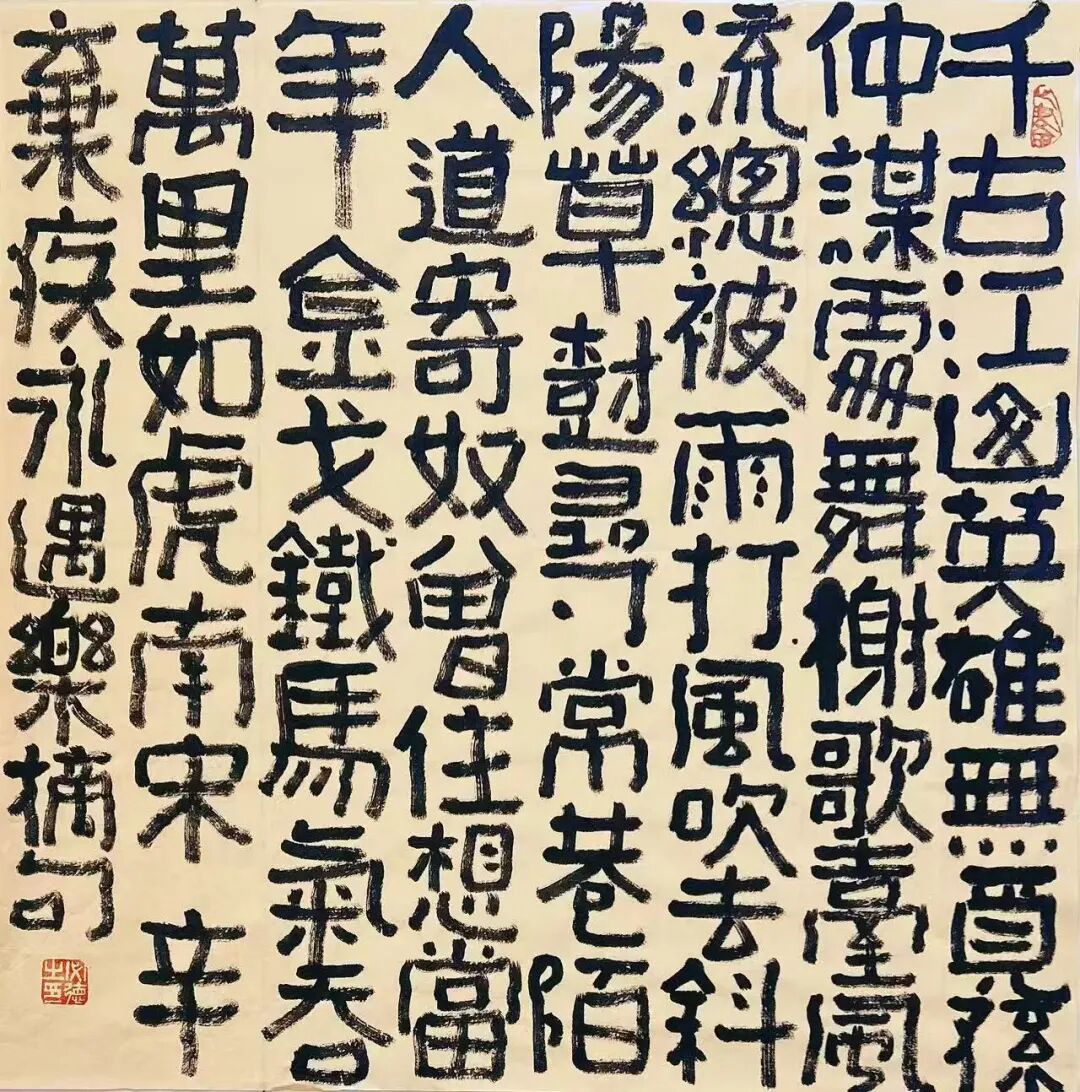 千古江山英雄無覓孫
仲謀處舞榭歌臺風
流總被雨打風吹去斜
陽草樹尋常巷陌
人道寄奴曾住想當
年金戈鐵馬氣吞
萬里如虎南宋 辛
棄疾永遇樂摘句